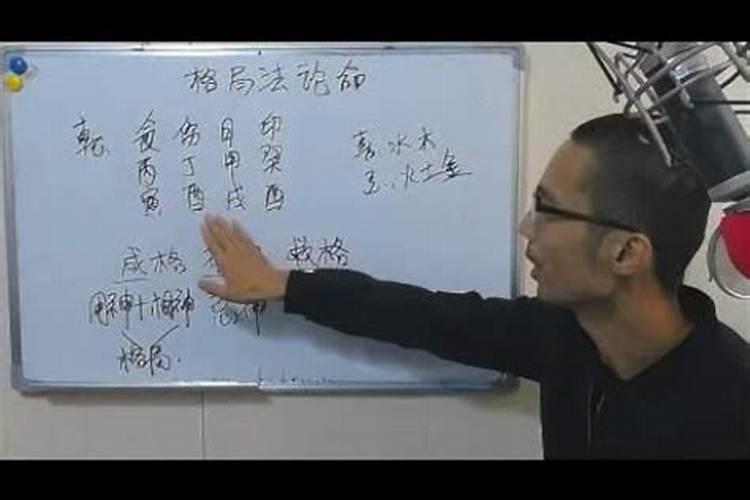 格局法论命
乾 食 伤 日 印
丙 丁 甲 癸
寅 酉 戌 酉
喜、水木
忌、火土金
成格 救格
用神+相神 忌神
格局.